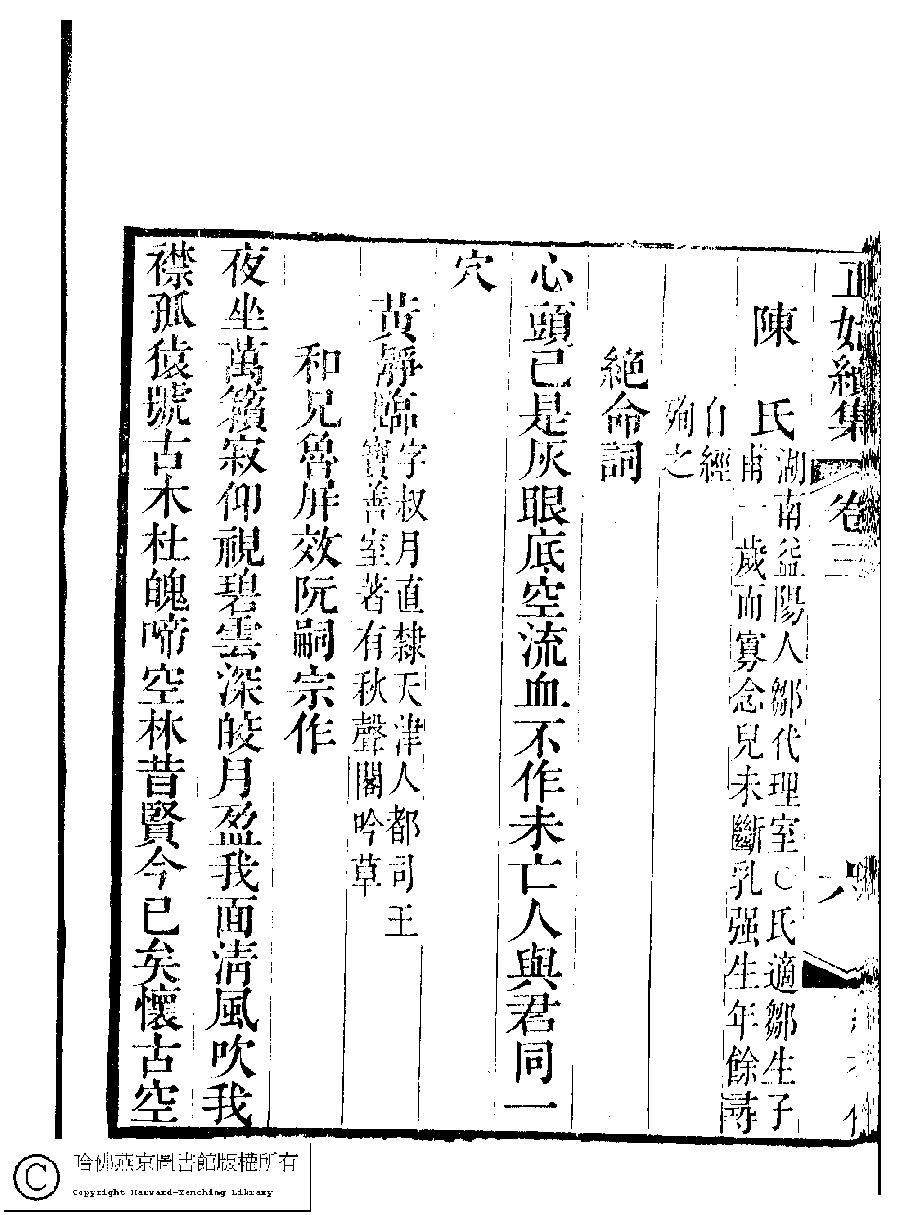 正始續集 卷三
陳 氏
湖南益陽人鄒代理室○氏適鄒生子
甫一歲而寡念兒未斷乳强生年餘尋
自經
殉之
絕命詞
心頭已是灰眼底空流血不作未亡人與君同一
穴
黃靜臨
字叔月直隸天津人都司王
寶善室著有秋聲閣吟草
和兄魯屏效阮嗣宗作
夜坐萬籟寂仰視碧雲深皎月盈我面淸風吹我
襟孤猿號古木杜魄啼空林昔賢今已矣懷古空
哈佛燕京圖書館版權所有
Copyright Harvard-Yenching Library